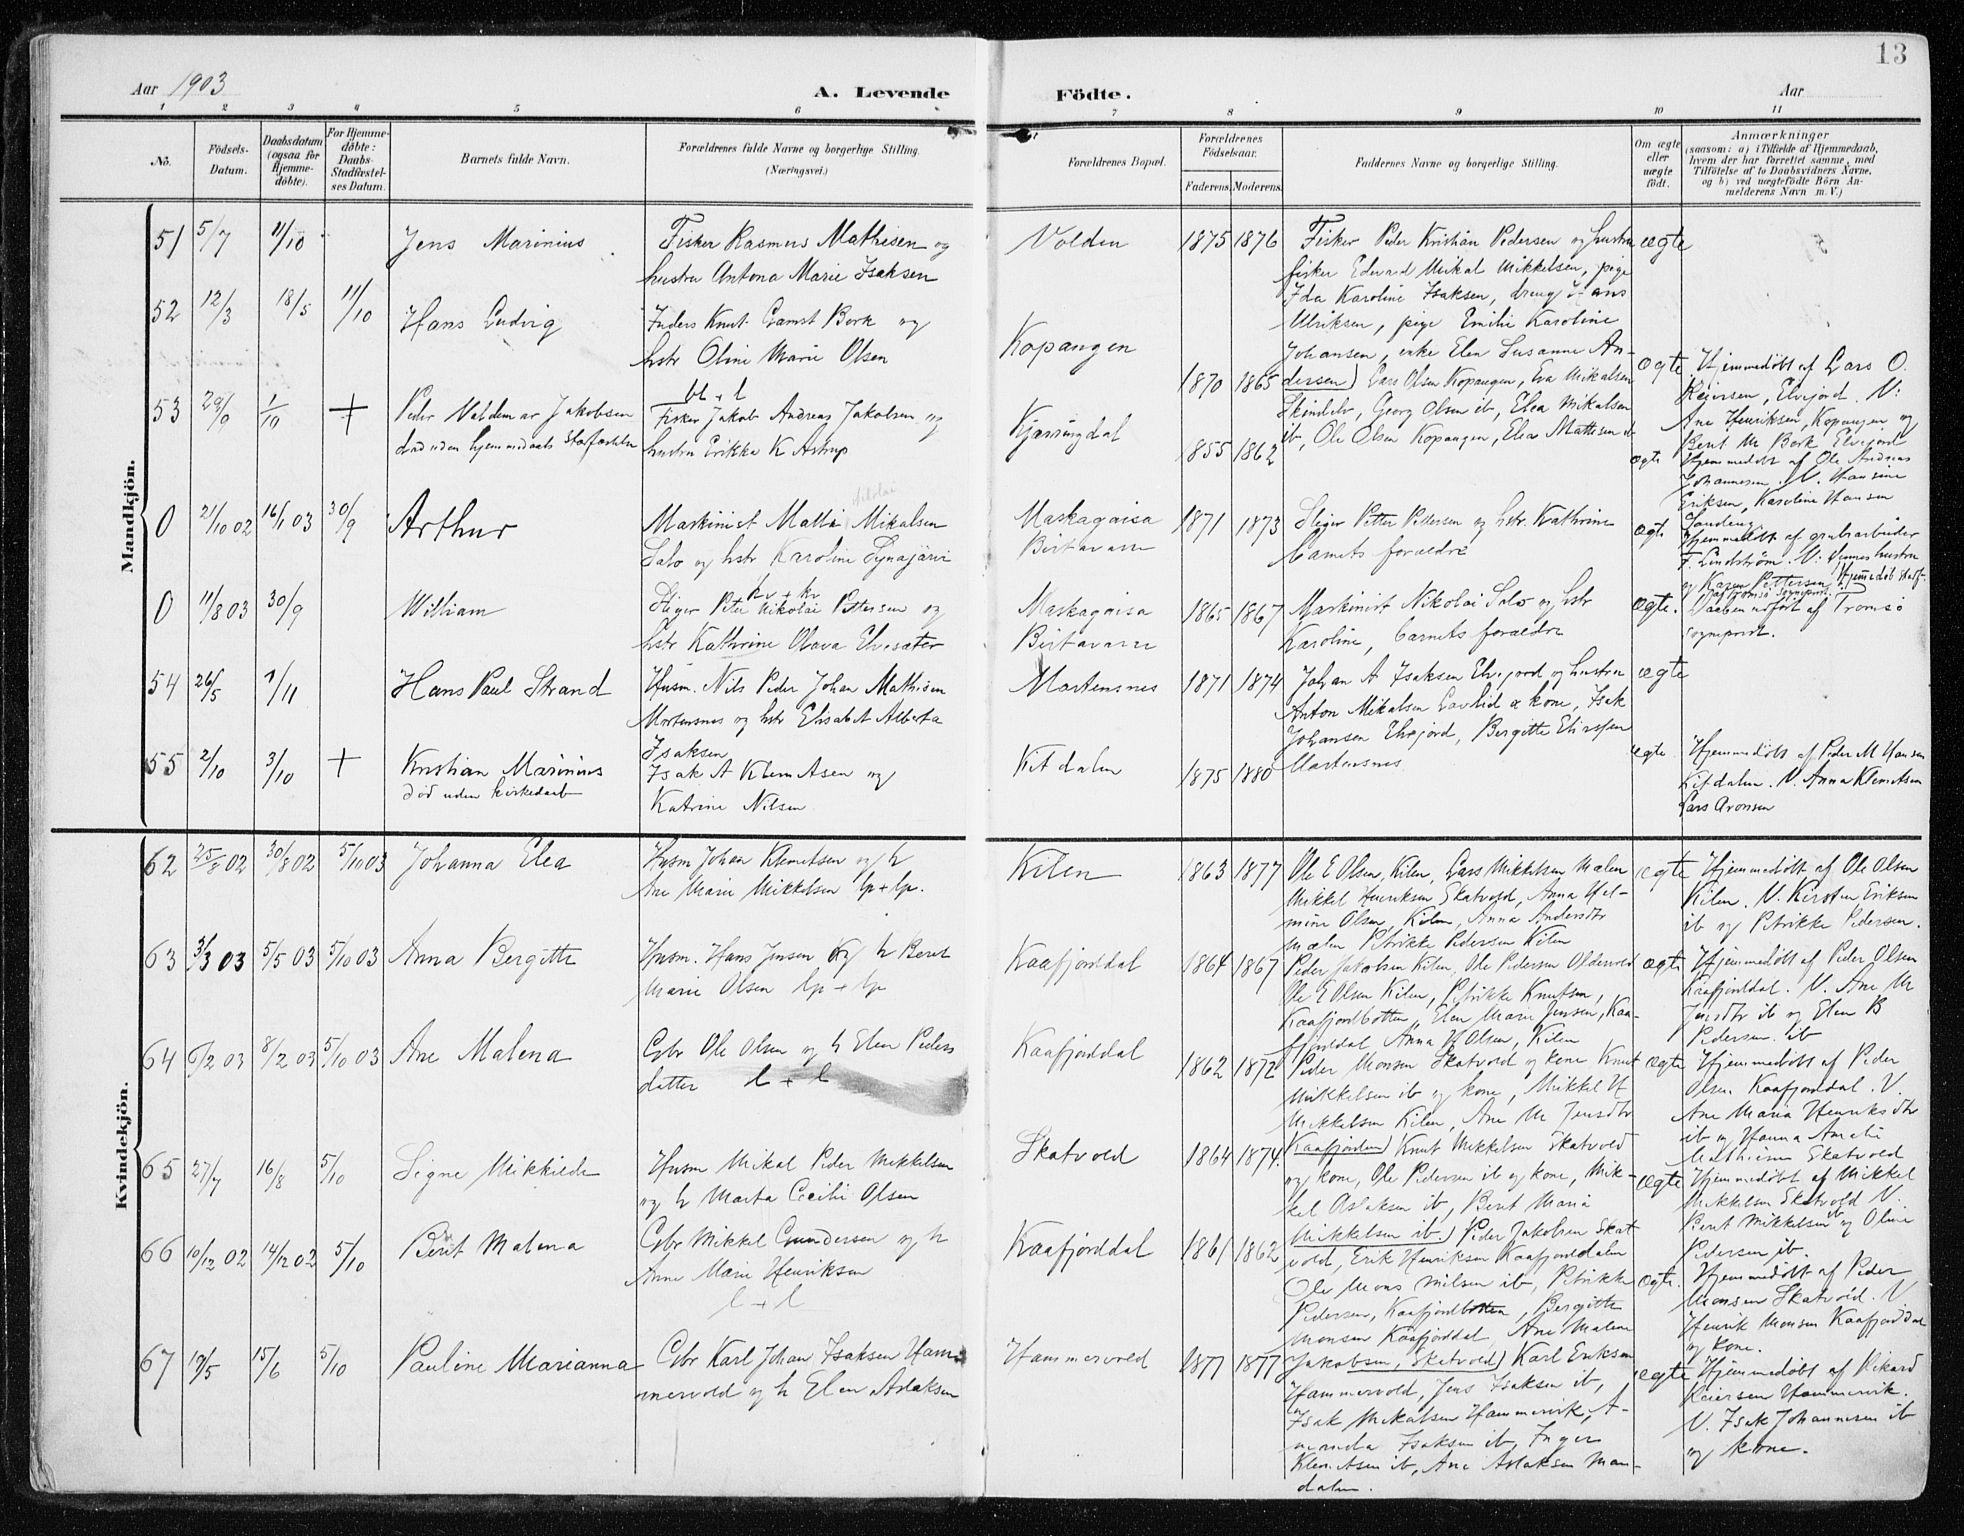 13
Aar 1903
A. Levende
Födte.
Aar
1 2 3 4 5 6 7 8 9 10 11
No.
Födsels-
Datum.
Daabsdatum
(ogsaa for
Hjemme-
döbte).
For Hjemme-
döbte:
Daabs-
Stadfæstel-
ses Datum.
Barnets fulde Navn.
Forældrenes fulde Navne og borgerlige Stilling.
(Næringsvei.)
Forældrenes Bopæl.
Forældrenes
Födselsaar.
Faderens. Moderens.
Faddernes Navne og borgerlige Stilling.
Om ægte
eller
uægte
födt.
Anmærkninger
(saasom: a) i Tilfælde af Hjemmedaab,
hvem der har forrettet samme, med
Tilföielse af to Daabsvidners Navne,
og b) ved uægtefödte Börn An-
melderens Navn m. V.)
Mandkjön.
51 5/7 11/10 Jens Marinius
Fisker Rasmus Mathisen og
hustru Antona Marie Isaksen
Volden 1875 1876
Fisker Peder Kristian Pedersen og hustru
fisker Edvard Mikal Mikkelsen, pige
Ida Karoline Isaksen, dreng Hans
Ulriksen, pige Emilie Karoline
Johansen, enke Elen Susanne An-
dersen)
ægte
52 12/3 18/5 11/10 Hans Ludvig
Inders Knut Gamst Bork og
hstr Oline Marie Olsen
Kopangen 1870 1865
Lars Olsen Kopangen, Eva Mikalsen
Skindelv, Georg Olsen ib, Elea Mikalsen
ib, Ole Olsen Kopangen, Elea Mathisen ib
ægte
Hjemmedöbt af Lars O.
Keiersen, Elvejord. V:
Ane Henriksen, Kopangen og
Berit M Bork Elvejord
53 29/9 1/10 + Peder Valdemar Jakobsen
död uden hjemmedaabs Stadfæstelse
bl + l
Fisker Jakob Andreas Jakobsen og
hustru Erikka K Astrup
Kjerringdal 1855 1862
ægte
Hjemmedöbt af Ole Andreas
Johannesen. V. Hansine
Eriksen, Karoline Hansen
0 21/10 02 16/1 03 30/9 Arthur
Nikolai
Maskinist Matti Mikalsen
Salo og hstr Karoline Synajärvi
kv + kv
Maskagaisa
Birtavarre
1871 1873
Stiger Petter Pettersen og hstr. Kathrine
barnets forældre
ægte
Hjemmedöbt af grubearbeider
F. Lindström. V: dennes hustru
og Karen Pettersen
0 11/8 03 30/9 William
Stiger Peter Nikolai Pettersen og
hstr Kathrine Olava Elvesæter
Maskagaisa
Birtavarre
1865 1867
Maskinist Nikolai Salo og hstr
Karoline, barnets forældre
ægte.
Daaben udfört af Tromsö
sogneprest.
54 26/5 1/11 Hans Paul Strand
Husm. Nils Peder Johan Mathisen
Mortensnes og hstr Elisabet Alberta
Isaksen
Mortensnes 1871 1874
Johan A Isaksen Elvejord og hustru
Anton Mikalsen Lavlid & kone, Isak
Johansen Elvejord, Bergitte Elissen
Mortensnes
ægte
55 2/10 3/10 + Kristian Marinius
död uden kirkedaab
Isak A Klemetsen og
Katrine Nilsen
Kitdalen 1875 1880
ægte
Hjemmedöbt af Peder M Hansen
Kitdalen. V. Anna Klemetsen
Lars Aronsen
Kvindekjön.
62 25/8 02 30/8 02 5/10 03 Johanna Elea
Husm Johan Klemetsen og h
Ane Marie Mikkelsen lp + lp.
Kilen 1863 1877
Ole E Olsen, Kilen, Lars Mikkelsen Mælen
Mikkel Henriksen Skatvold, Anna Hel-
mine Olsen, Kilen, Anna Andersdtr
Mælen Petrikke Pedersen Kilen
ægte
Hjemmedöbt af Ole Olsen
Kilen. V. Kirsten Eriksen
ib og Petrikke Pedersen.
63 31/3 03 5/5 03 5/10 03 Anna Bergitte
Husm. Hans Jensen og h Beret
Marie Olsen lp + lp
Kaafjorddal 1864 1867
Peder Jakobsen Kilen, Ole Pedersen Oldervold
Ole E Olsen Kilen, Petrikke Knutsen,
Kaafjordbotten, Elen Marie Jensen, Kaa-
fjorddal Anna H Olsen, Kilen
ægte
Hjemmedöbt af Peder Olsen
Kaafjorddal. V. Ane M
Jensdtr ib og Elen B
Pedersen. ib
64 6/2 03 8/2 03 5/10 03 Ane Malena
Gbr Ole Olsen og h Elen Peders
datter l + l
Kaafjorddal 1862 1872
Peder Monsen Skatvold og kone Knut
Mikkelsen ib og kone, Mikkel H
Mikkelsen Kilen, Ane M Jensdtr
Kaafjorden)
ægte
Hjemmedöbt af Peder
Olsen Kaafjorddal. V.
Ane Maria Henriksdtr
ib og Hanna Amalie
Mathisen Skatvold
65 27/7 16/8 5/10 Signe Mikkiede
Husm Mikal Peder Mikkelsen
og h Marta Cecilie Olsen
Skatvold 1864 1874.
Knut Mikkelsen Skatvold
og kone, Ole Pedersen ib og kone, Mik-
kel Aslaksen ib, Berit Maria
Mikkelsen ib)
ægte
Hjemmedöbt af Mikkel
Mikkelsen Skatvold V.
Berit Mikkelsen ib og Oline
Pedersen ib.
66 10/12 02 14/12 02 5/10 Berit Malena
Gbr Mikkel Gundersen og h
Anne Marie Henriksen
l + l
Kaafjorddal 1861 1862
Peder Jakobsen Skat
vold, Erik Henriksen Kaafjorddalen
Ole Mons Nilsen ib, Petrikke
Pedersen, Kaafjordbotten, Bergitte
Monsen Kaafjorddal, Ane Malene
Jakobsen, Skatvold)
ægte.
Hjemmedöbt af Peder
Monsen Skatvold. V
Henrik Monsen Kaafjorddal
og kone.
67 17/5 15/6 5/10 Pauline Marianna
Gbr Karl Johan Isaksen Ham-
mervold og h Elen Aslaksen
Hammervold 1877 1877
Karl Eriksen
Hammervold, Jens Isaksen ib,
Isak Mikalsen Hammervik, A-
manda Isaksen ib, Inger
Klemetsen ib, Ane Aslaksen Man-
dalen.
ægte
Hjemmedöbt af Rikard
Keiersen Hammervik.
V. Isak Johannesen ib
og kone.